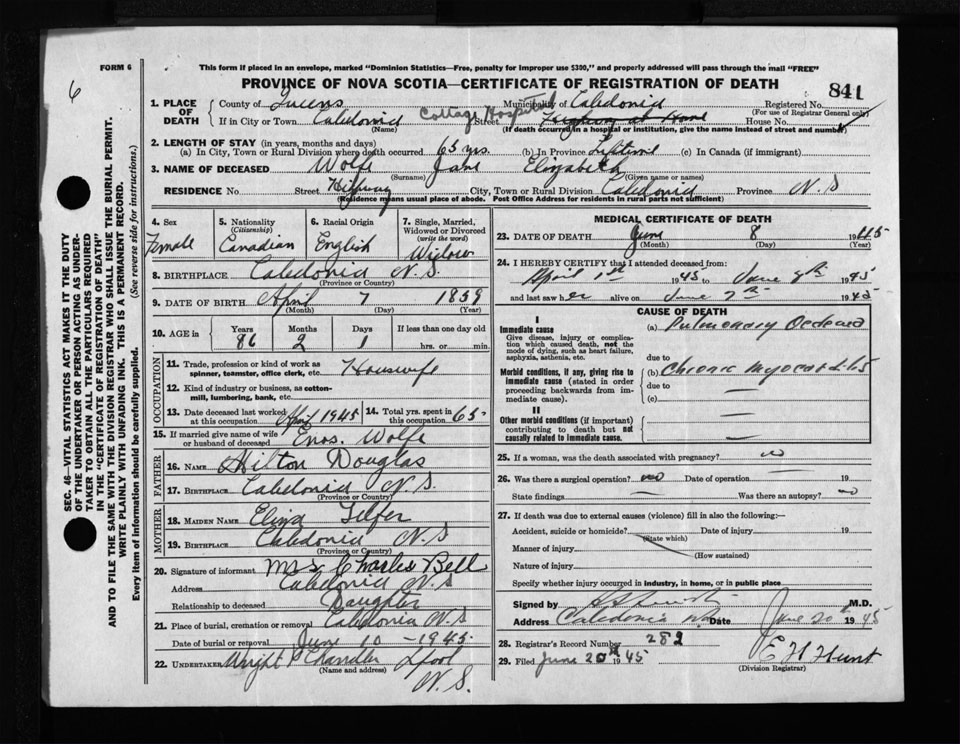 FORM 6
This form if placed in an envelope, marked "Dominion Statistics—Free, penalty for improper use $300," and properly addressed will pass through the mail "FREE"
6
PROVINCE OF NOVA SCOTIA—CERTIFICATE OF REGISTRATION OF DEATH
841
1. PLACE OF DEATH
County of Queens Municipality of Caledonia Registered No.
(For use of Registrar General only)
If in City or Town Caledonia Cottage Hospital Street House No.
(Name) (If death occurred in a hospital or institution, give the name instead of street and number)
2. LENGTH OF STAY (in years, months and days)
(a) In City, Town or Rural Division where death occurred 65 yrs. (b) In Province Lifetime (c) In Canada (if immigrant)
3. NAME OF DECEASED Wolfe Jane Elizabeth
(Surname) (Given name or names)
RESIDENCE No Street Highway City, Town or Rural Division Caledonia Province N.S
(Residence means usual place of abode. Post Office Address for residents in rural parts not sufficient)
SEC. 46—VITAL STATISTICS ACT MAKES IT THE DUTY
OF THE UNDERTAKER OR PERSON ACTING AS UNDER-
TAKER TO OBTAIN ALL THE PARTICULARS REQUIRED
IN THE "CERTIFICATE OF REGISTRATION OF DEATH"
AND TO FILE THE SAME WITH THE DIVISION REGISTRAR WHO SHALL ISSUE THE BURIAL PERMIT.
WRITE PLAINLY WITH UNFADING INK. THIS IS A PERMANENT RECORD.
Every item of information should be carefully supplied. (See reverse side for instructions.)
4. Sex
Female
5. Nationality
(Citizenship)
Canadian
6. Racial Origin
English
7. Single, Married,
Widowed or Divorced
(write the word)
Widow
8. BIRTHPLACE Caledonia N.S.
(Province or Country)
9. DATE OF BIRTH April 7 1859
(Month) (Day) (Year)
10. AGE in
Years Months Days If less than one day old
86 2 1 hrs. or min.
OCCUPATION
11. Trade, profession or kind of work as
spinner, teamster, office clerk, etc. Housewife
12. Kind of industry or business, as cotton-
mill, lumbering, bank, etc.
13. Date deceased last worked
at this occupation April 1945
14. Total yrs. spent in
this occupation 65
15. If married give name of wife
or husband of deceased Enos. Wolfe
FATHER
16. NAME Hilton Douglas
17. BIRTHPLACE Caledonia N.S.
(Province or Country)
MOTHER
18. MAIDEN NAME Eliza Telfer
19. BIRTHPLACE Caledonia N.S
(Province or Country)
20. Signature of informant Mrs Charles Bell
Address Caledonia N.S
Relationship to deceased Daughter
21. Place of burial, cremation or removal Caledonia N.S
Date of burial or removal June 10 - 1945
22. UNDERTAKER Wright Chandler Lpool
(Name and address)
N.S.
MEDICAL CERTIFICATE OF DEATH
23. DATE OF DEATH June 8 1945
(Month) (Day) (Year)
24. I HEREBY CERTIFY that I attended deceased from:
April 1st 1945 to June 8th 1945
and last saw her alive on June 7th 1945
CAUSE OF DEATH
I
Immediate cause (a) Pulmonary Oedema
Give disease, injury or complica-
tion which caused death, not the
mode of dying, such as heart failure,
asphyxia, asthenia, etc.
due to
Morbid conditions, if any, giving rise to
immediate cause (stated in order
proceeding backwards from im-
mediate cause).
(b) Chronic Myocarditis
due to
(c)
II
Other morbid conditions (if important)
contributing to death but not
causally related to immediate cause.
25. If a woman, was the death associated with pregnancy? no
26. Was there a surgical operation? no Date of operation 19
State findings Was there an autopsy? no
27. If death was due to external causes (violence) fill in also the following:—
Accident, suicide or homicide? Date of injury 19
(State which)
Manner of injury (How sustained)
Nature of injury
Specify whether injury occurred in industry, in home, or in public place
Signed by M.D.
Address Caledonia NS Date June 20th 1945
28. Registrar's Record Number 282
29. Filed June 20th 1945 E H Hunt
(Division Registrar)